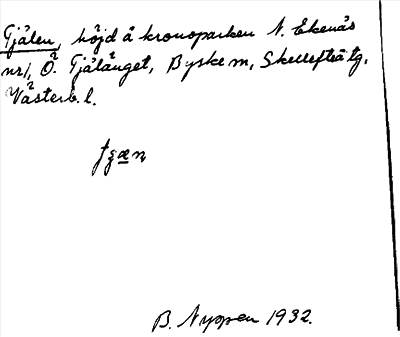 Tjålen, höjd å kronoparken N. Ekenäs
nr 1, Ö. Tjålänget, Byske sn, Skellefteå tg,
Västerb. l.
B. Nyppen 1932.